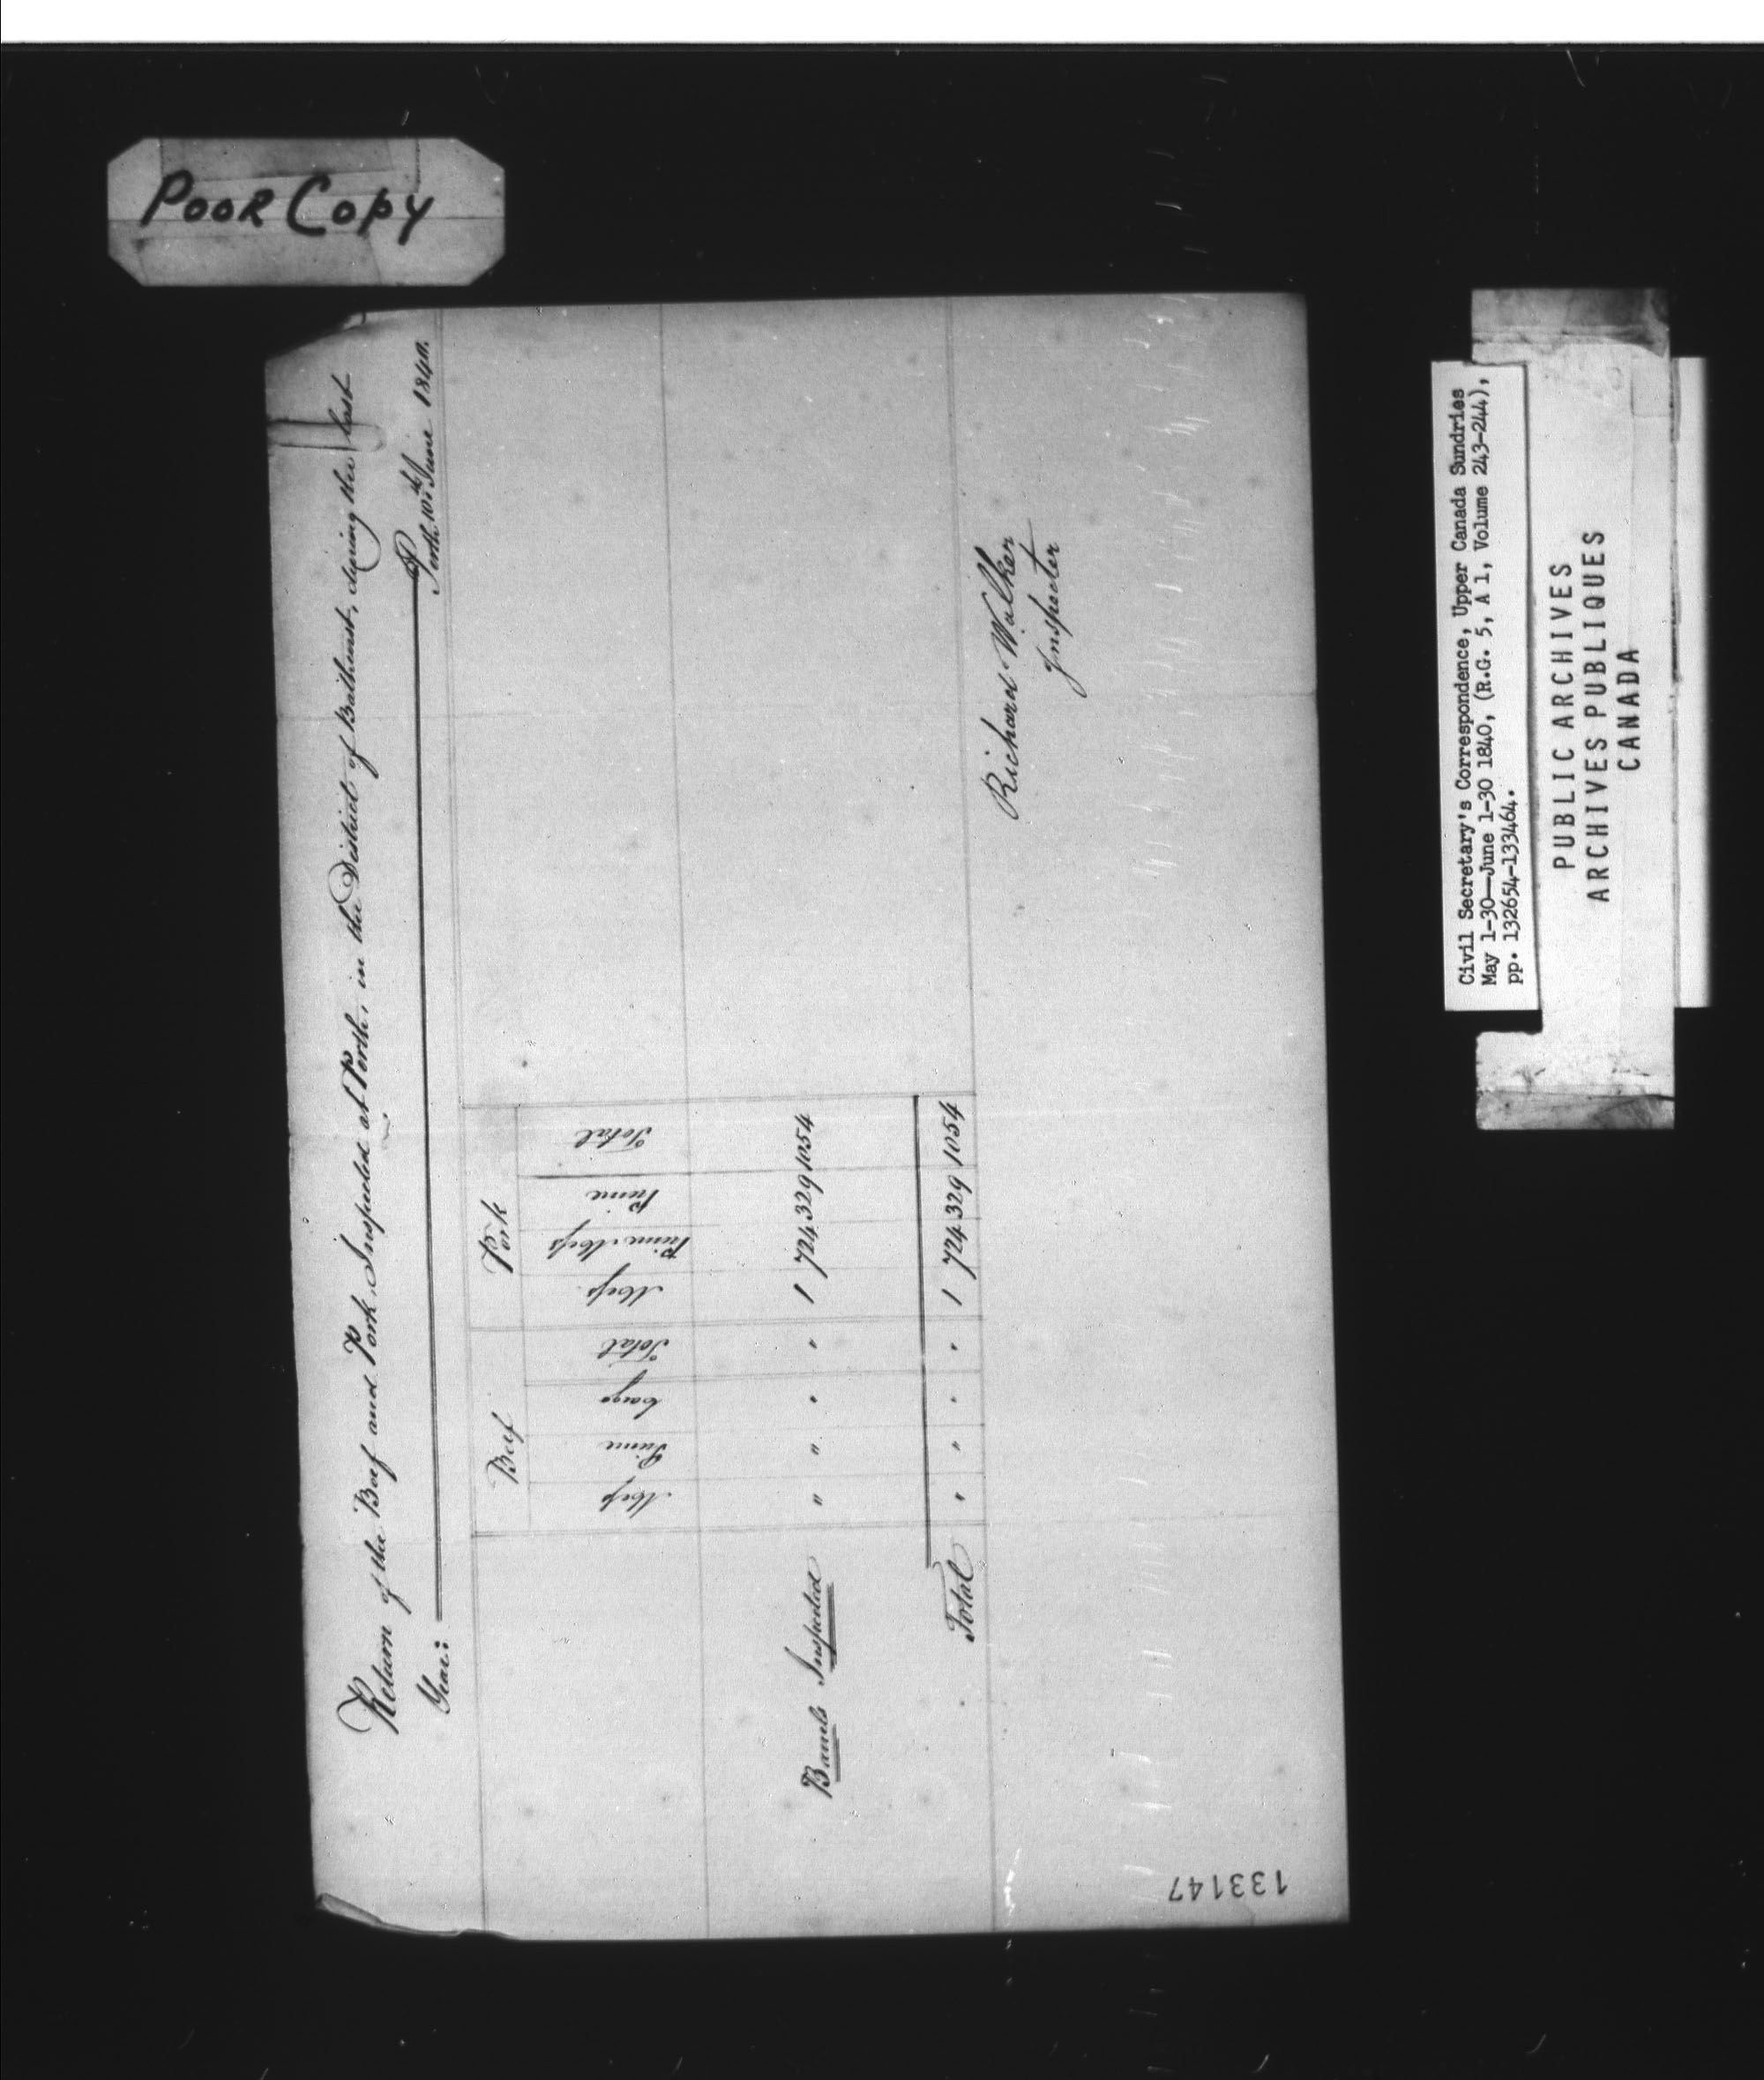 Poor Copy
Return of the Beef and Pork, Inspected at Perth, in the District of Bathurst, during the last
Year:
Perth 10th June 1840.
Beef Pork
Mess Prime Cargo Total Mess Prime Mess Prime Total
Barrels Inspected " " " " 1 724 329 1054
Total " " " " 1 724 329 1054
Richard Walker
Inspector
133147
Civil Secretary's Correspondence, Upper Canada Sundries
May 1-30—June 1-30 1840, (R.G. 5, A 1, Volume 243-244),
pp. 132654-133464.
PUBLIC ARCHIVES
ARCHIVES PUBLIQUES
CANADA